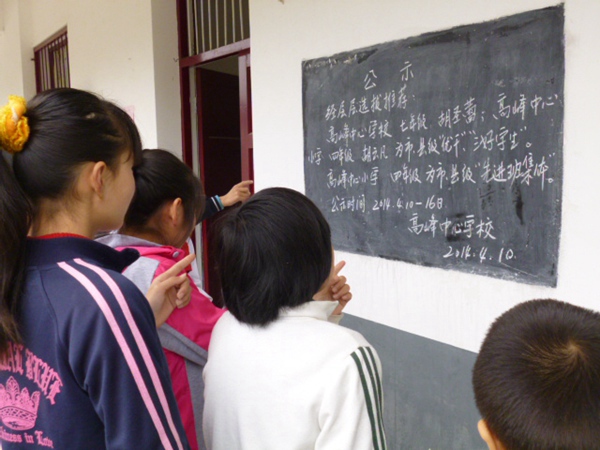 公示
经层层选拔推荐
高峰中心学校 七年级 胡圣菊、高峰中心
小学 四年级 胡云凡 为市.县级"优干""三好学生"。
高峰中心小学 四年级 为市.县级"先进班集体"。
公示时间:2014.4.10-16日
高峰中心学校
2014.4.10.